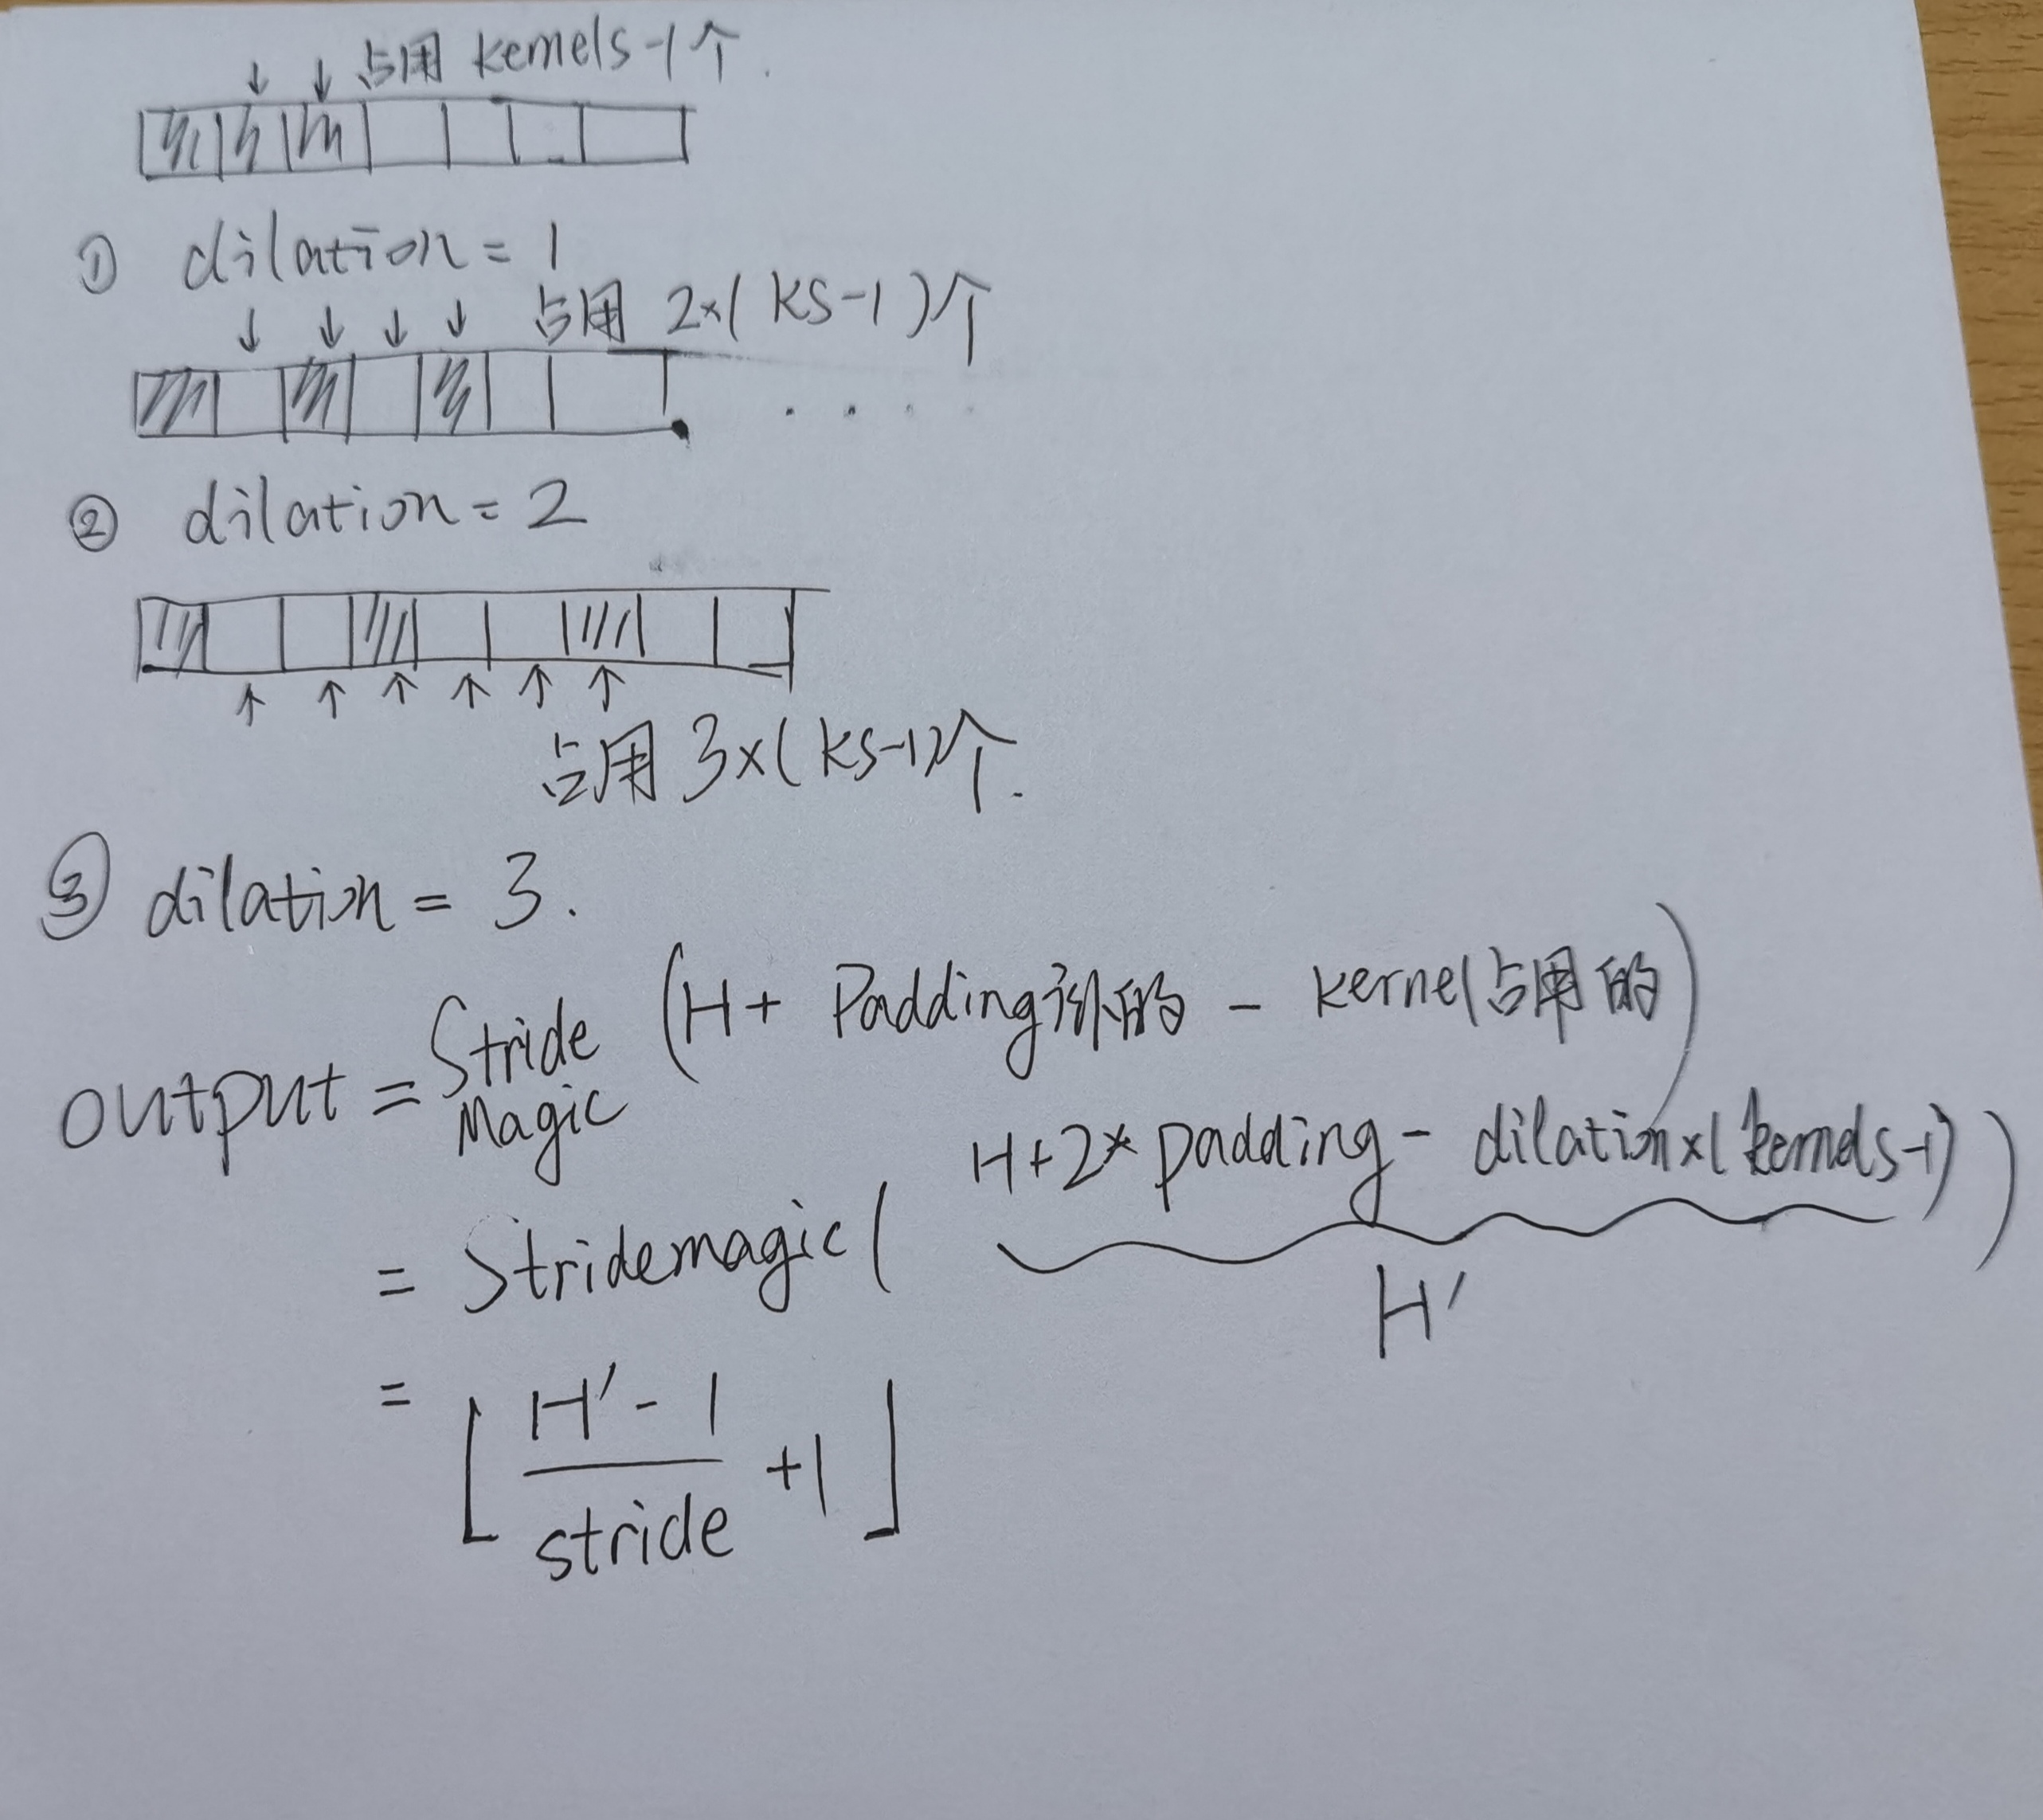 ↓ ↓ 占用 kernels-1个.
① dilation = 1
↓ ↓ ↓ ↓ 占用 2×(ks-1)个
② dilation = 2
↑ ↑ ↑ ↑ ↑ ↑
占用 3×(ks-1)个.
③ dilation = 3.
output = Stride Magic (H + Padding添的 - kernel占用的)
= Stridemagic ( H+2* padding - dilation×(kernels-1) )
H'
= ⌊ (H'-1)/stride +1 ⌋